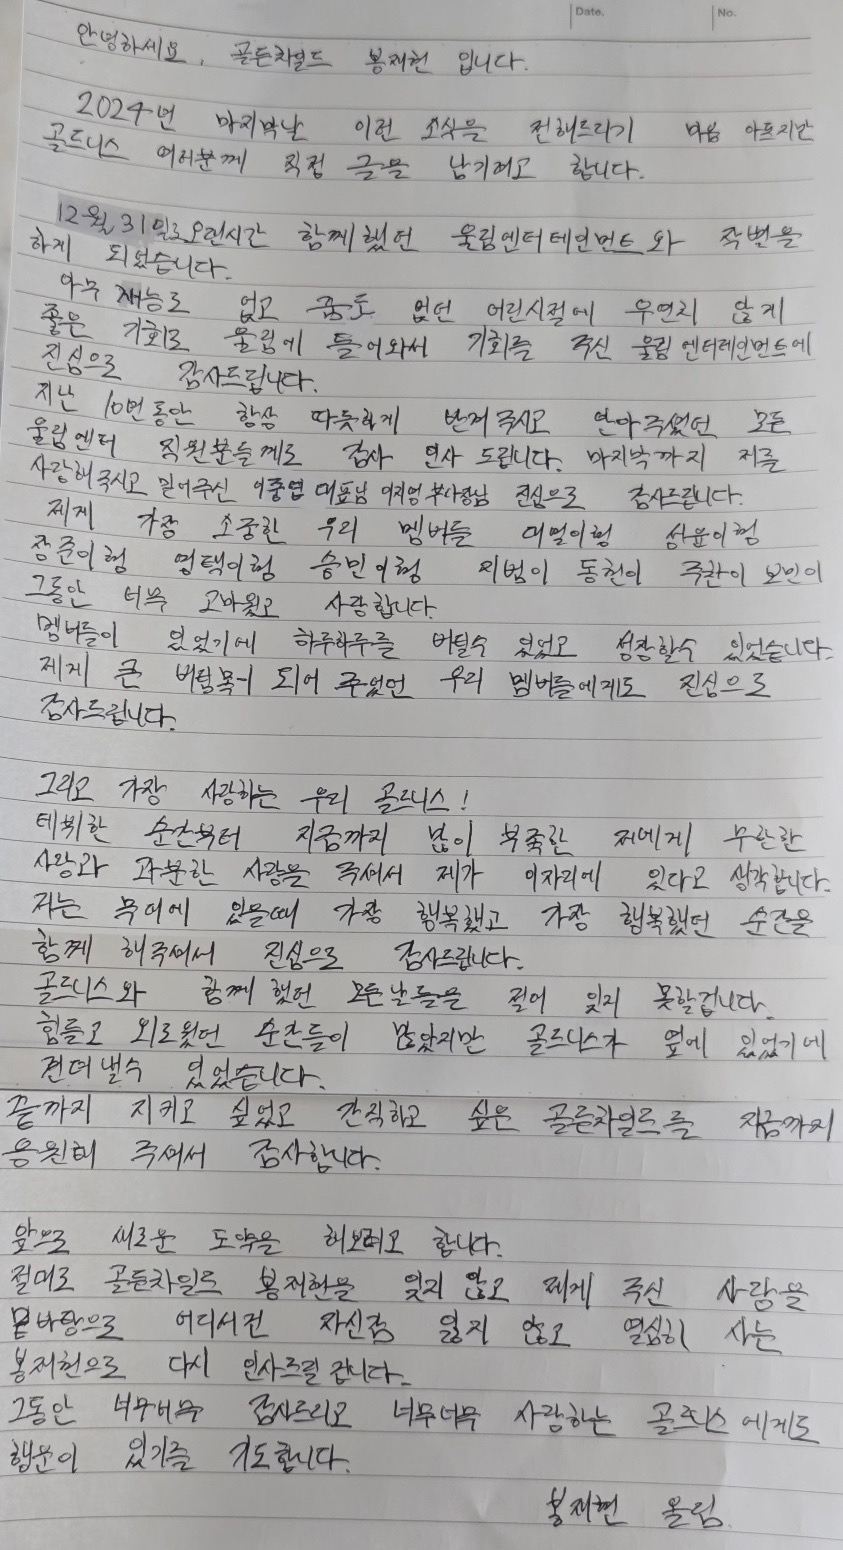 Date.
No.
안녕하세요, 골든차일드 봉재현 입니다.
2024년 마지막날 이런 소식을 전해드리기 마음 아프지만
골드니스 여러분께 직접 글을 남기려고 합니다.
12월 31일로 오랜시간 함께했던 울림엔터테인먼트와 작별을
하게 되었습니다.
아무 재능도 없고 꿈도 없던 어린시절에 우연치 않게
좋은 기회로 울림에 들어와서 기회를 주신 울림 엔터테인먼트에
진심으로 감사드립니다.
지난 10년동안 항상 따뜻하게 반겨주시고 안아주셨던 모든
울림엔터 직원분들께도 감사 인사 드립니다. 마지막까지 저를
사랑해주시고 믿어주신 이중엽 대표님 이지영 부사장님 진심으로 감사드립니다.
제게 가장 소중한 우리 멤버들 대열이형 성윤이형
장준이형 영택이형 승민이형 지범이 동현이 주찬이 보민이
그동안 너무 고마웠고 사랑합니다.
멤버들이 있었기에 하루하루를 버틸수 있었고 성장할수 있었습니다.
제게 큰 버팀목이 되어 주었던 우리 멤버들에게도 진심으로
감사드립니다.
그리고 가장 사랑하는 우리 골드니스!
데뷔한 순간부터 지금까지 많이 부족한 저에게 무한한
사랑과 과분한 사랑을 주셔서 제가 이자리에 있다고 생각합니다.
저는 무대에 있을때 가장 행복했고 가장 행복했던 순간을
함께 해주셔서 진심으로 감사드립니다.
골드니스와 함께 했던 모든날들을 절대 잊지 못할겁니다.
힘들고 외로웠던 순간들이 많았지만 골드니스가 옆에 있었기에
견뎌낼수 있었습니다.
끝까지 지키고 싶었고 간직하고 싶은 골든차일드를 지금까지
응원해 주셔서 감사합니다.
앞으로 새로운 도약을 해보려고 합니다.
절대로 골든차일드 봉재현을 잊지 않고 제게 주신 사랑을
밑바탕으로 어디서건 자신감 잃지 않고 열심히 사는
봉재현으로 다시 인사드릴 겁니다.
그동안 너무너무 감사드리고 너무너무 사랑하는 골드니스에게도
행운이 있기를 기도합니다.
봉재현 올림.